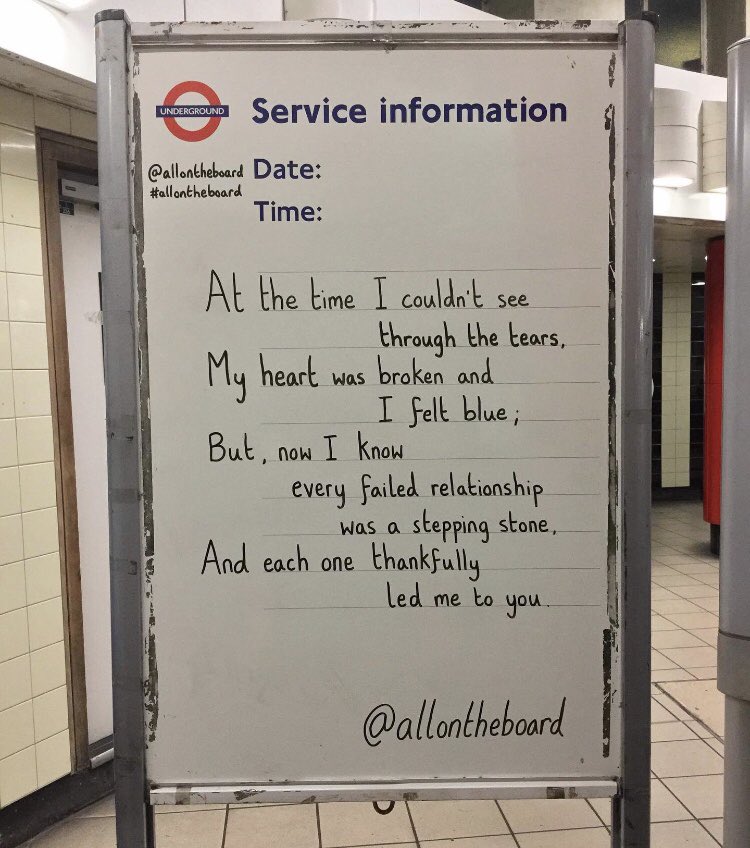 UNDERGROUND
Service information
@allontheboard
#allontheboard
Date:
Time:
At the time I couldn't see
through the tears,
My heart was broken and
I felt blue;
But, now I know
every failed relationship
was a stepping stone,
And each one thankfully
led me to you.
@allontheboard